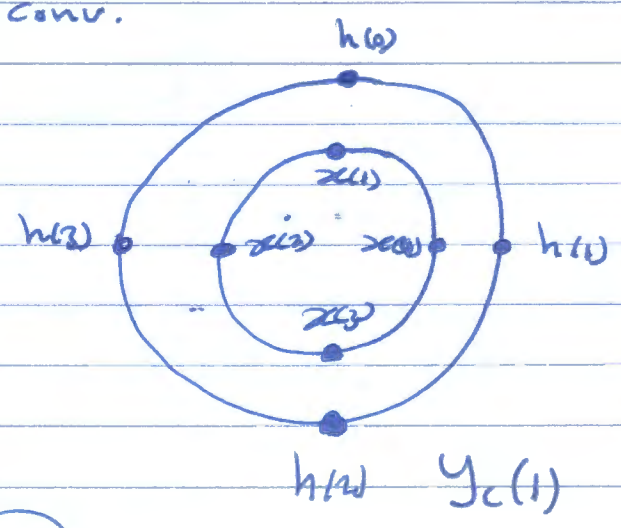 Conv.
h(0)
x(1)
h(3) x(2) x(0) h(1)
x(3)
h(2) y_c(1)